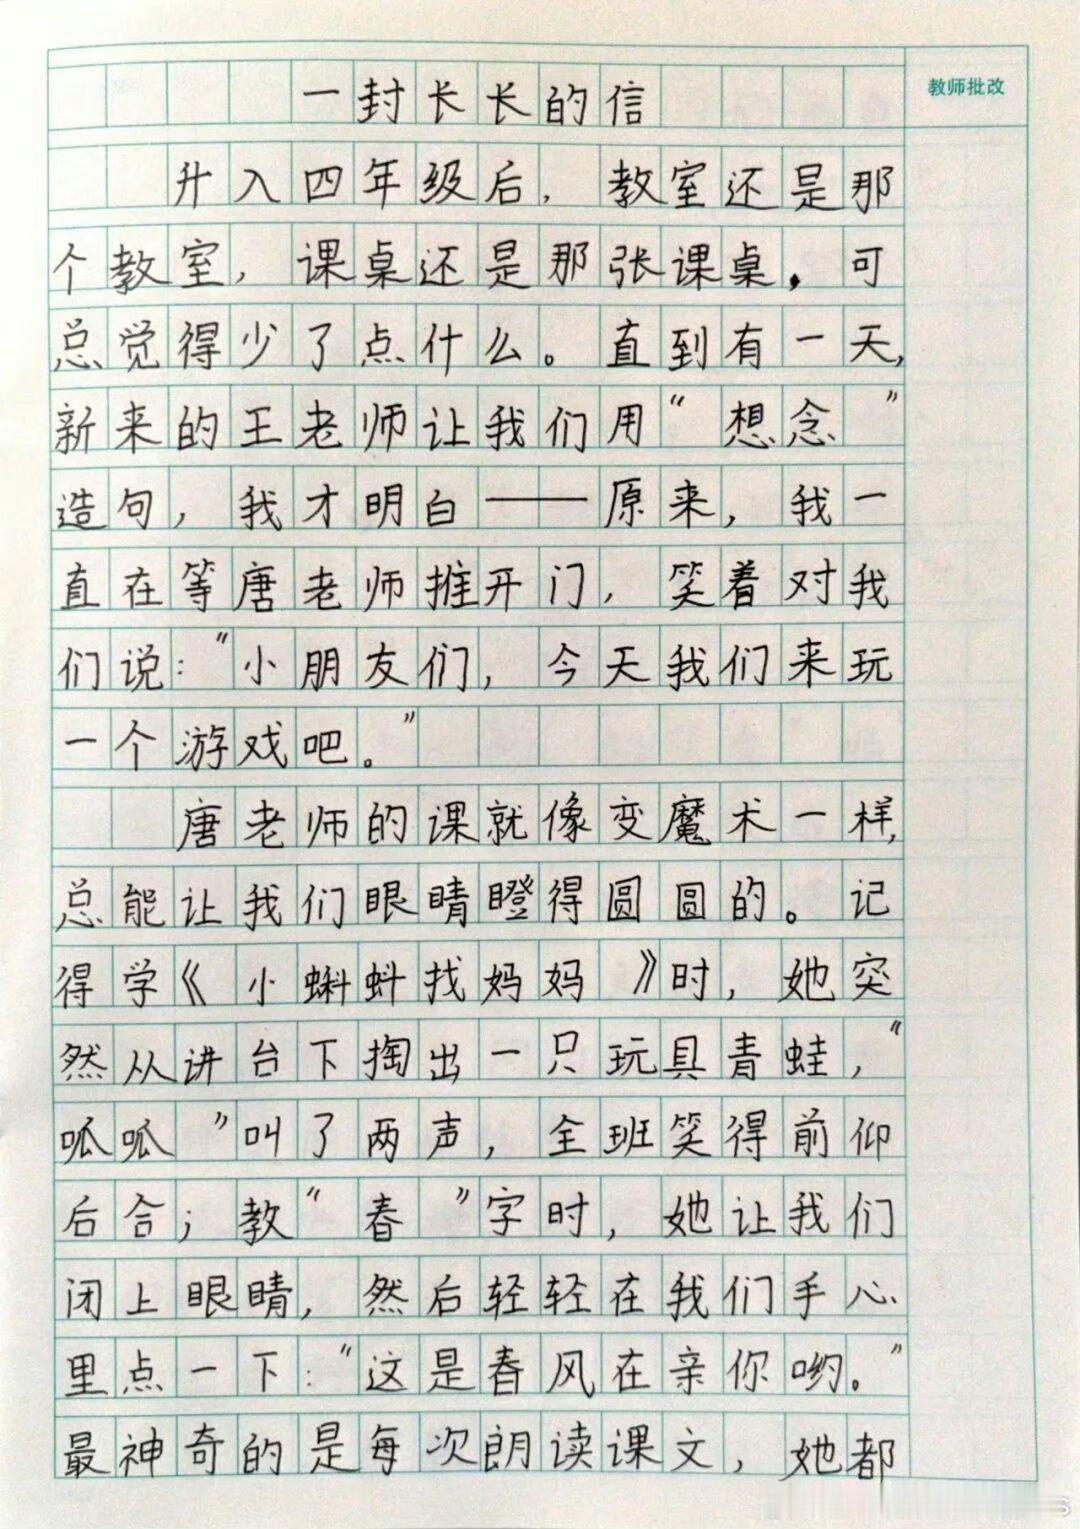 教师批改
一封长长的信
升入四年级后，教室还是那
个教室，课桌还是那张课桌，可
总觉得少了点什么。直到有一天，
新来的王老师让我们用“想念”
造句，我才明白——原来，我一
直在等唐老师推开门，笑着对我
们说：“小朋友们，今天我们来玩
一个游戏吧。”
唐老师的课就像变魔术一样，
总能让我们眼睛瞪得圆圆的。记
得学《小蝌蚪找妈妈》时，她突
然从讲台下掏出一只玩具青蛙，“
呱呱”叫了两声，全班笑得前仰
后合；教“春”字时，她让我们
闭上眼睛，然后轻轻在我们手心
里点一下：“这是春风在亲你哟。”
最神奇的是每次朗读课文，她都